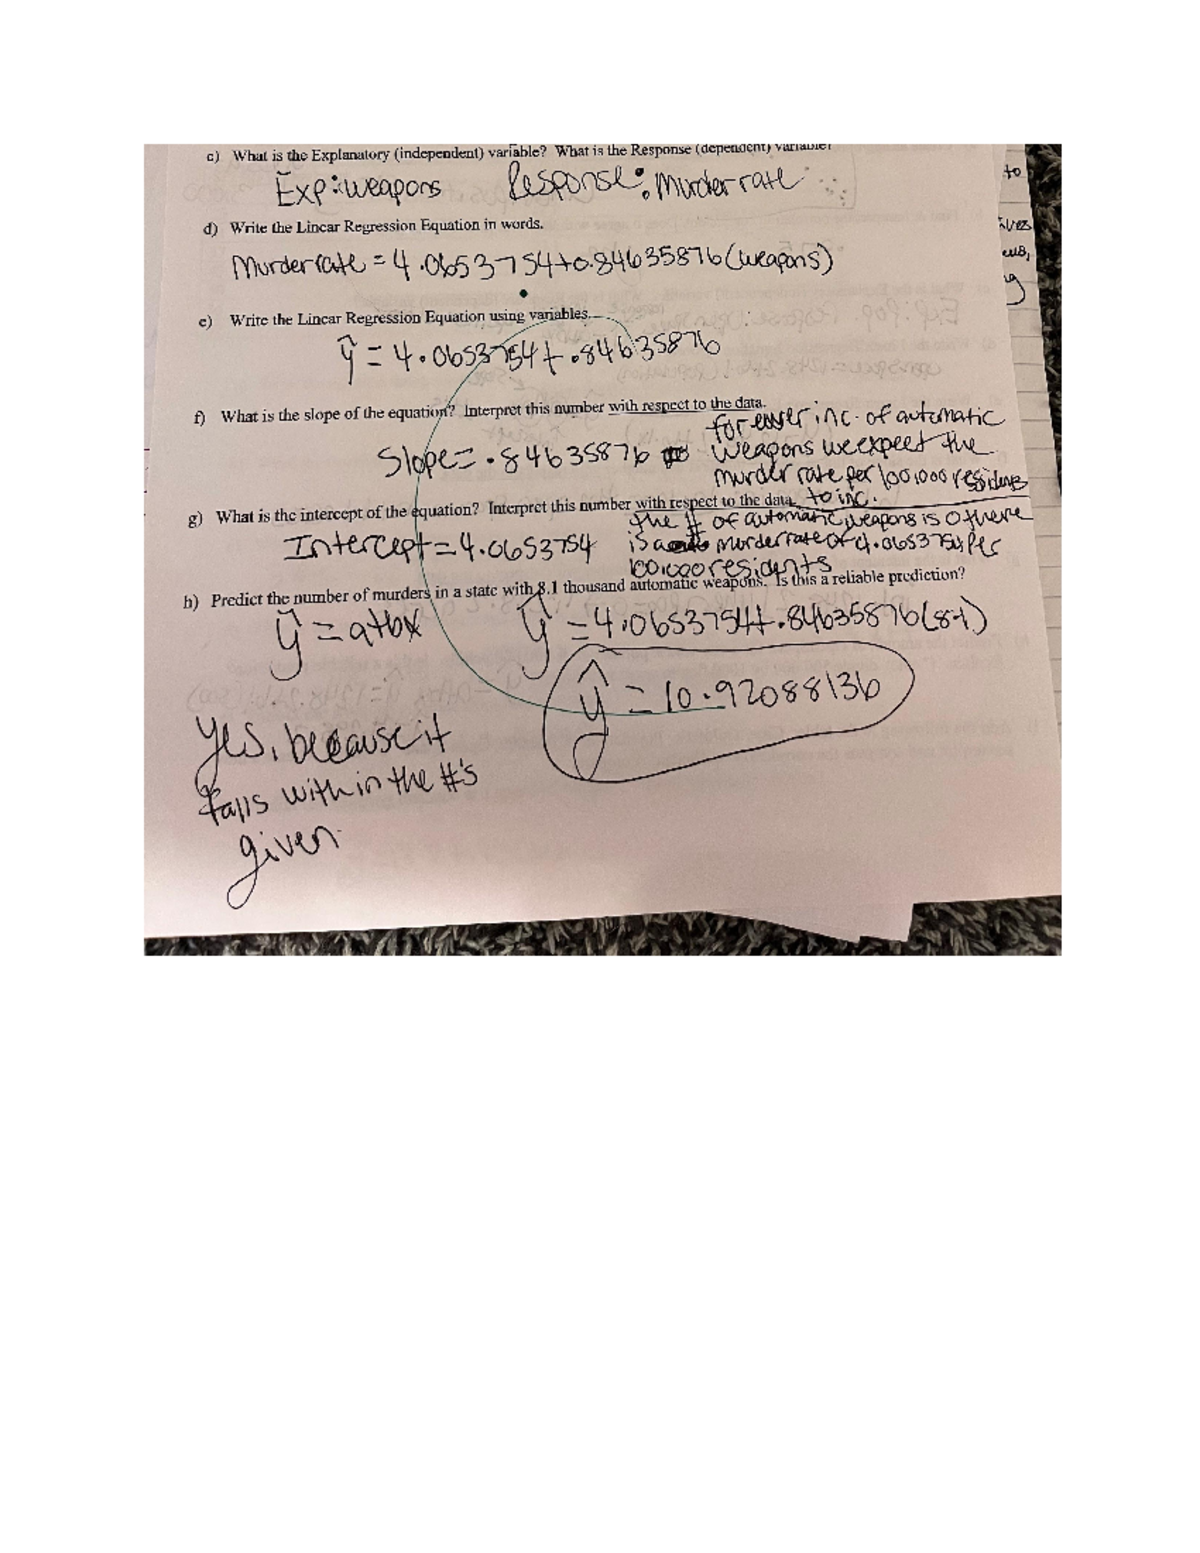 c) What is the Explanatory (independent) variable? What is the Response (dependent) variable?
Exp: weapons Response: Murder rate
d) Write the Linear Regression Equation in words.
Murder rate = 4.0653754+0.84635876(weapons)
e) Write the Linear Regression Equation using variables.
ŷ = 4.0653754+.84635876
f) What is the slope of the equation? Interpret this number with respect to the data.
for every inc. of automatic
Slope= .84635876 weapons we expect the
murder rate per 100,000 residents
to inc.
g) What is the intercept of the equation? Interpret this number with respect to the data.
the # of automatic weapons is 0 there
Intercept=4.0653754 is a murder rate of 4.0653754 per
100,000 residents
h) Predict the number of murders in a state with 8.1 thousand automatic weapons. Is this a reliable prediction?
ŷ = a+bx ŷ = 4.0653754+.84635876(8.1)
ŷ = 10.92088136
Yes, because it
falls within the #'s
given.
to
ives